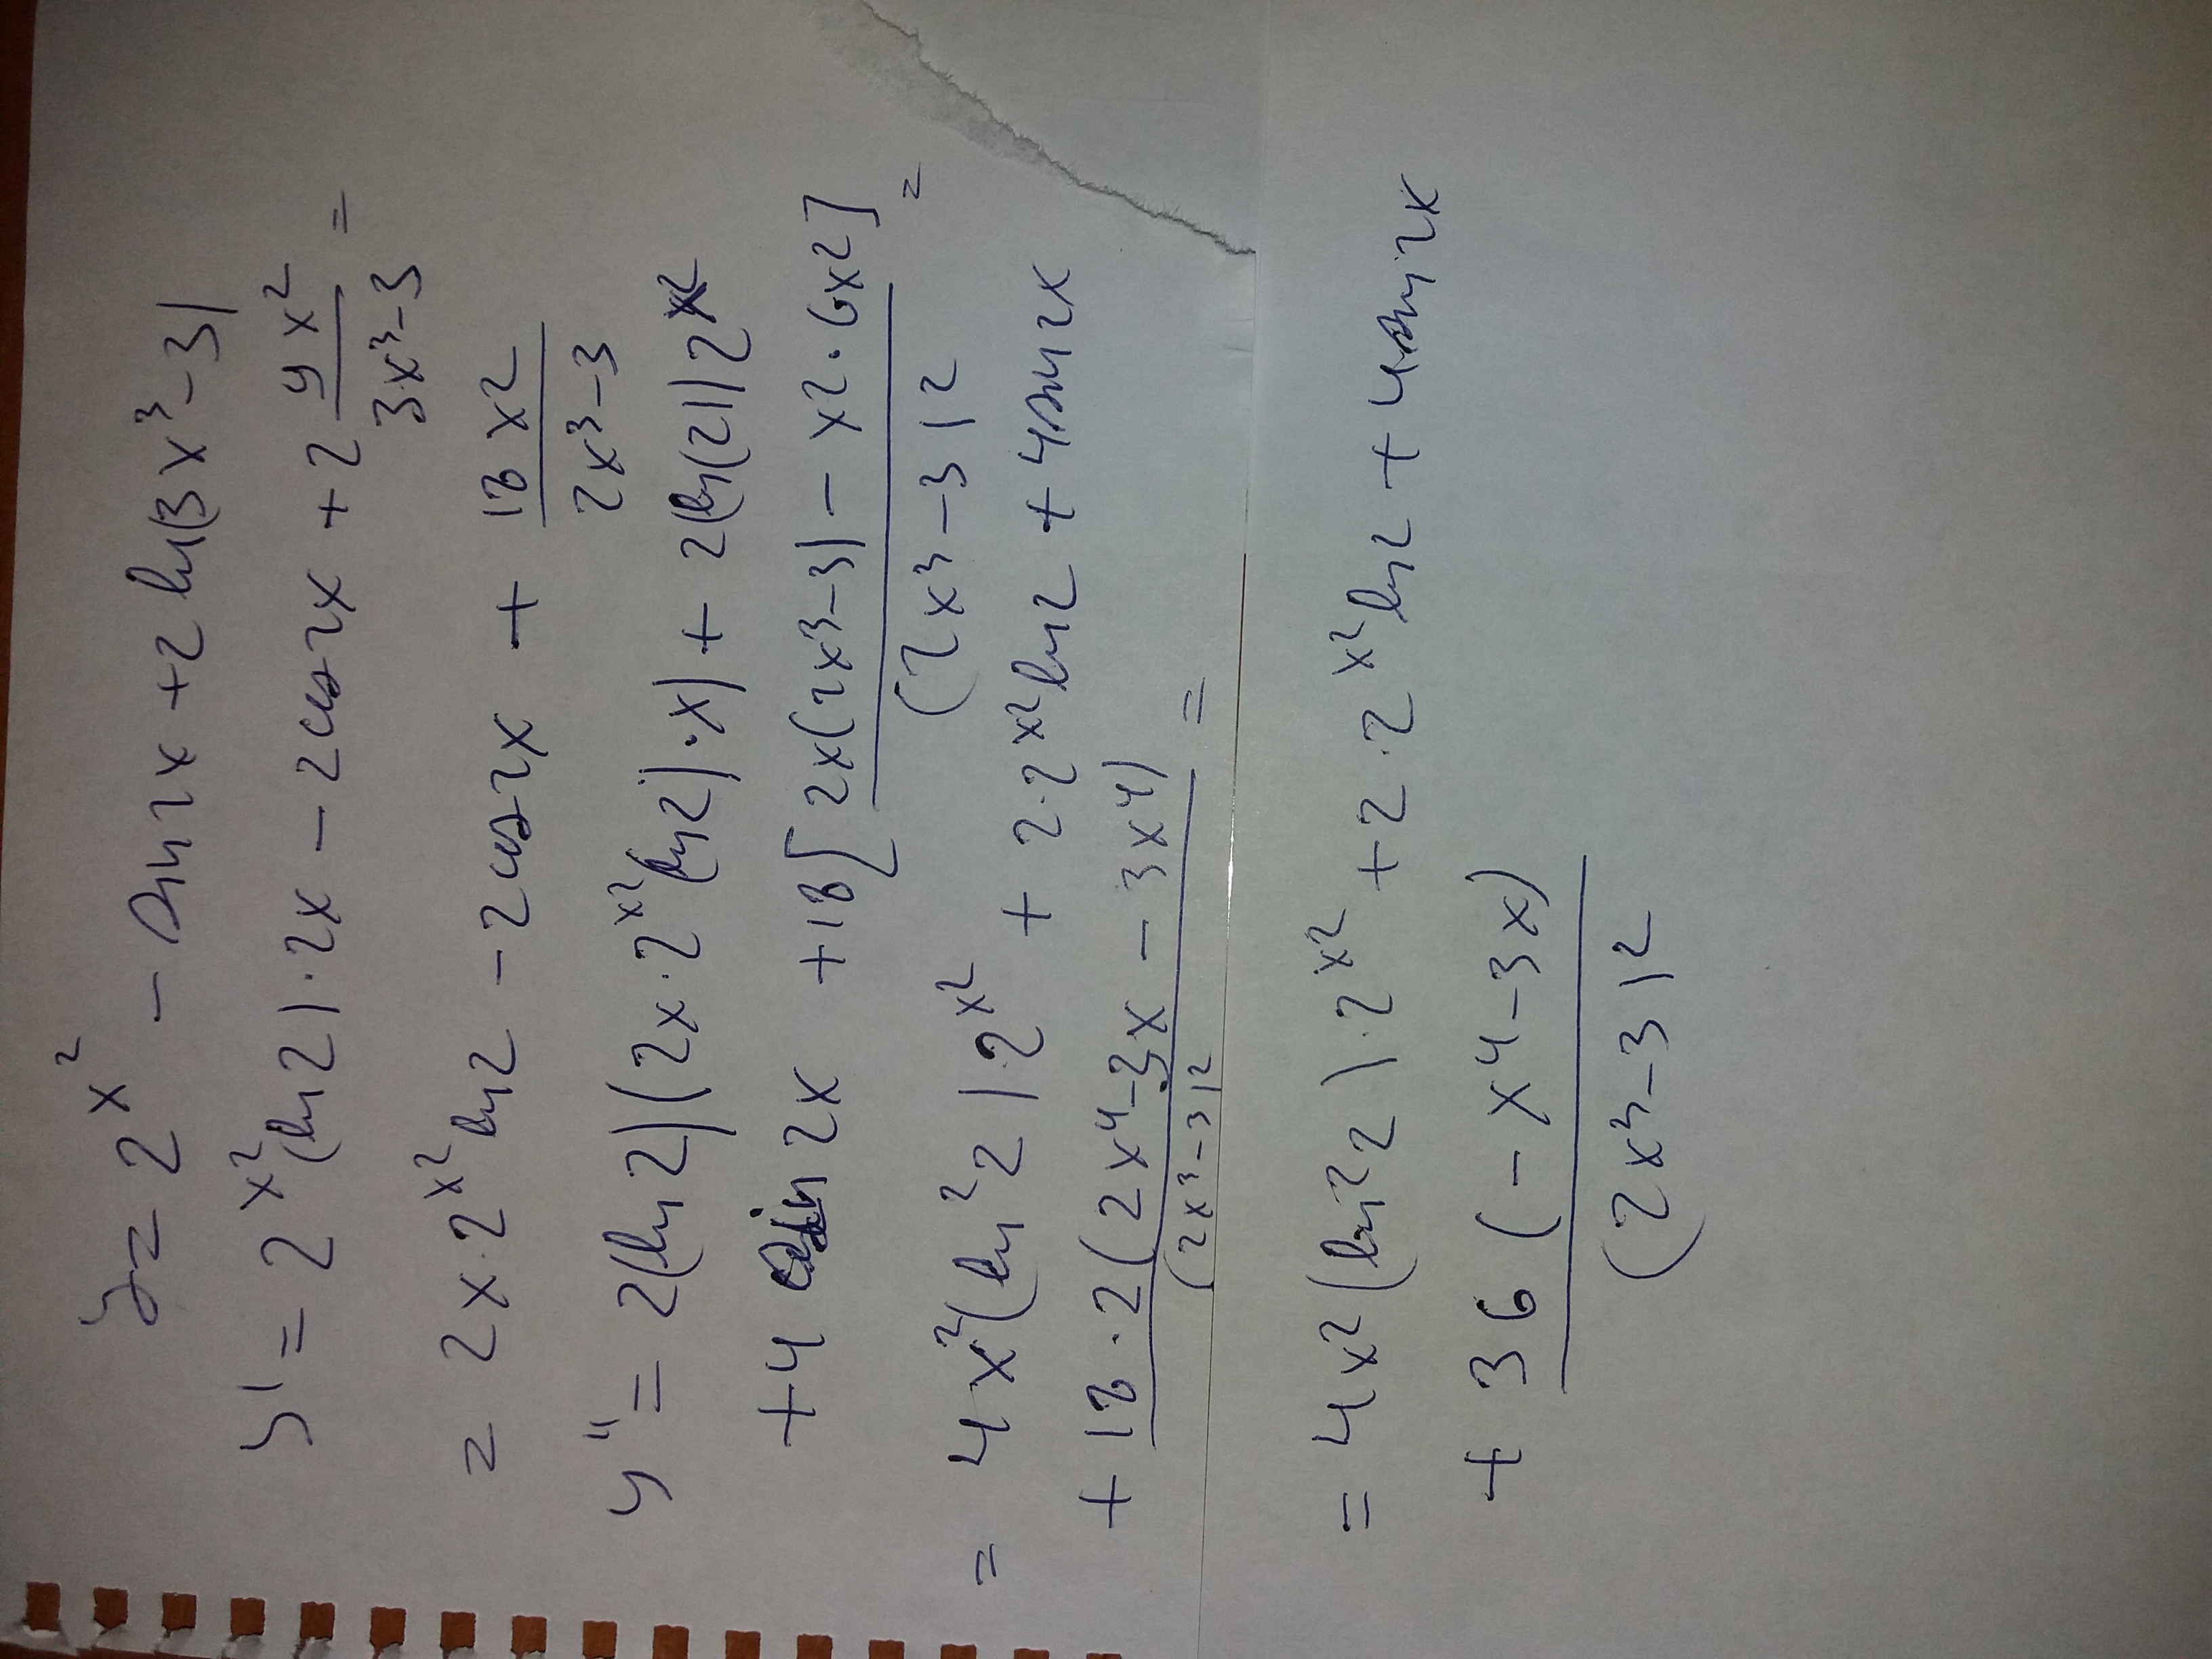 y = 2^x^2 - sin 2x + 2 ln(3x^3-3)
y' = 2^x^2 (ln 2)·2x - 2cos 2x + 2 9x^2/(3x^3-3) =
= 2x·2^x^2 ln2 - 2cos 2x + 18x^2/(2x^3-3)
y'' = 2(ln 2)(2x·2^x^2(ln 2)·x) + 2(ln(2))2^x^2
+4 sin 2x +18[2x(2x^3-3) - x^2·6x^2]/(2x^3-3)^2 =
= 4x^2(ln^2 2)·2^x^2 + 2·2^x^2 ln2 + 4sin 2x
+ 18·2(2x^4-3x - 3x^4)/(2x^3-3)^2 =
= 4x^2(ln^2 2)·2^x^2 + 2·2^x^2 ln2 + 4sin 2x
+ 36(-x^4-3x)/(2x^3-3)^2